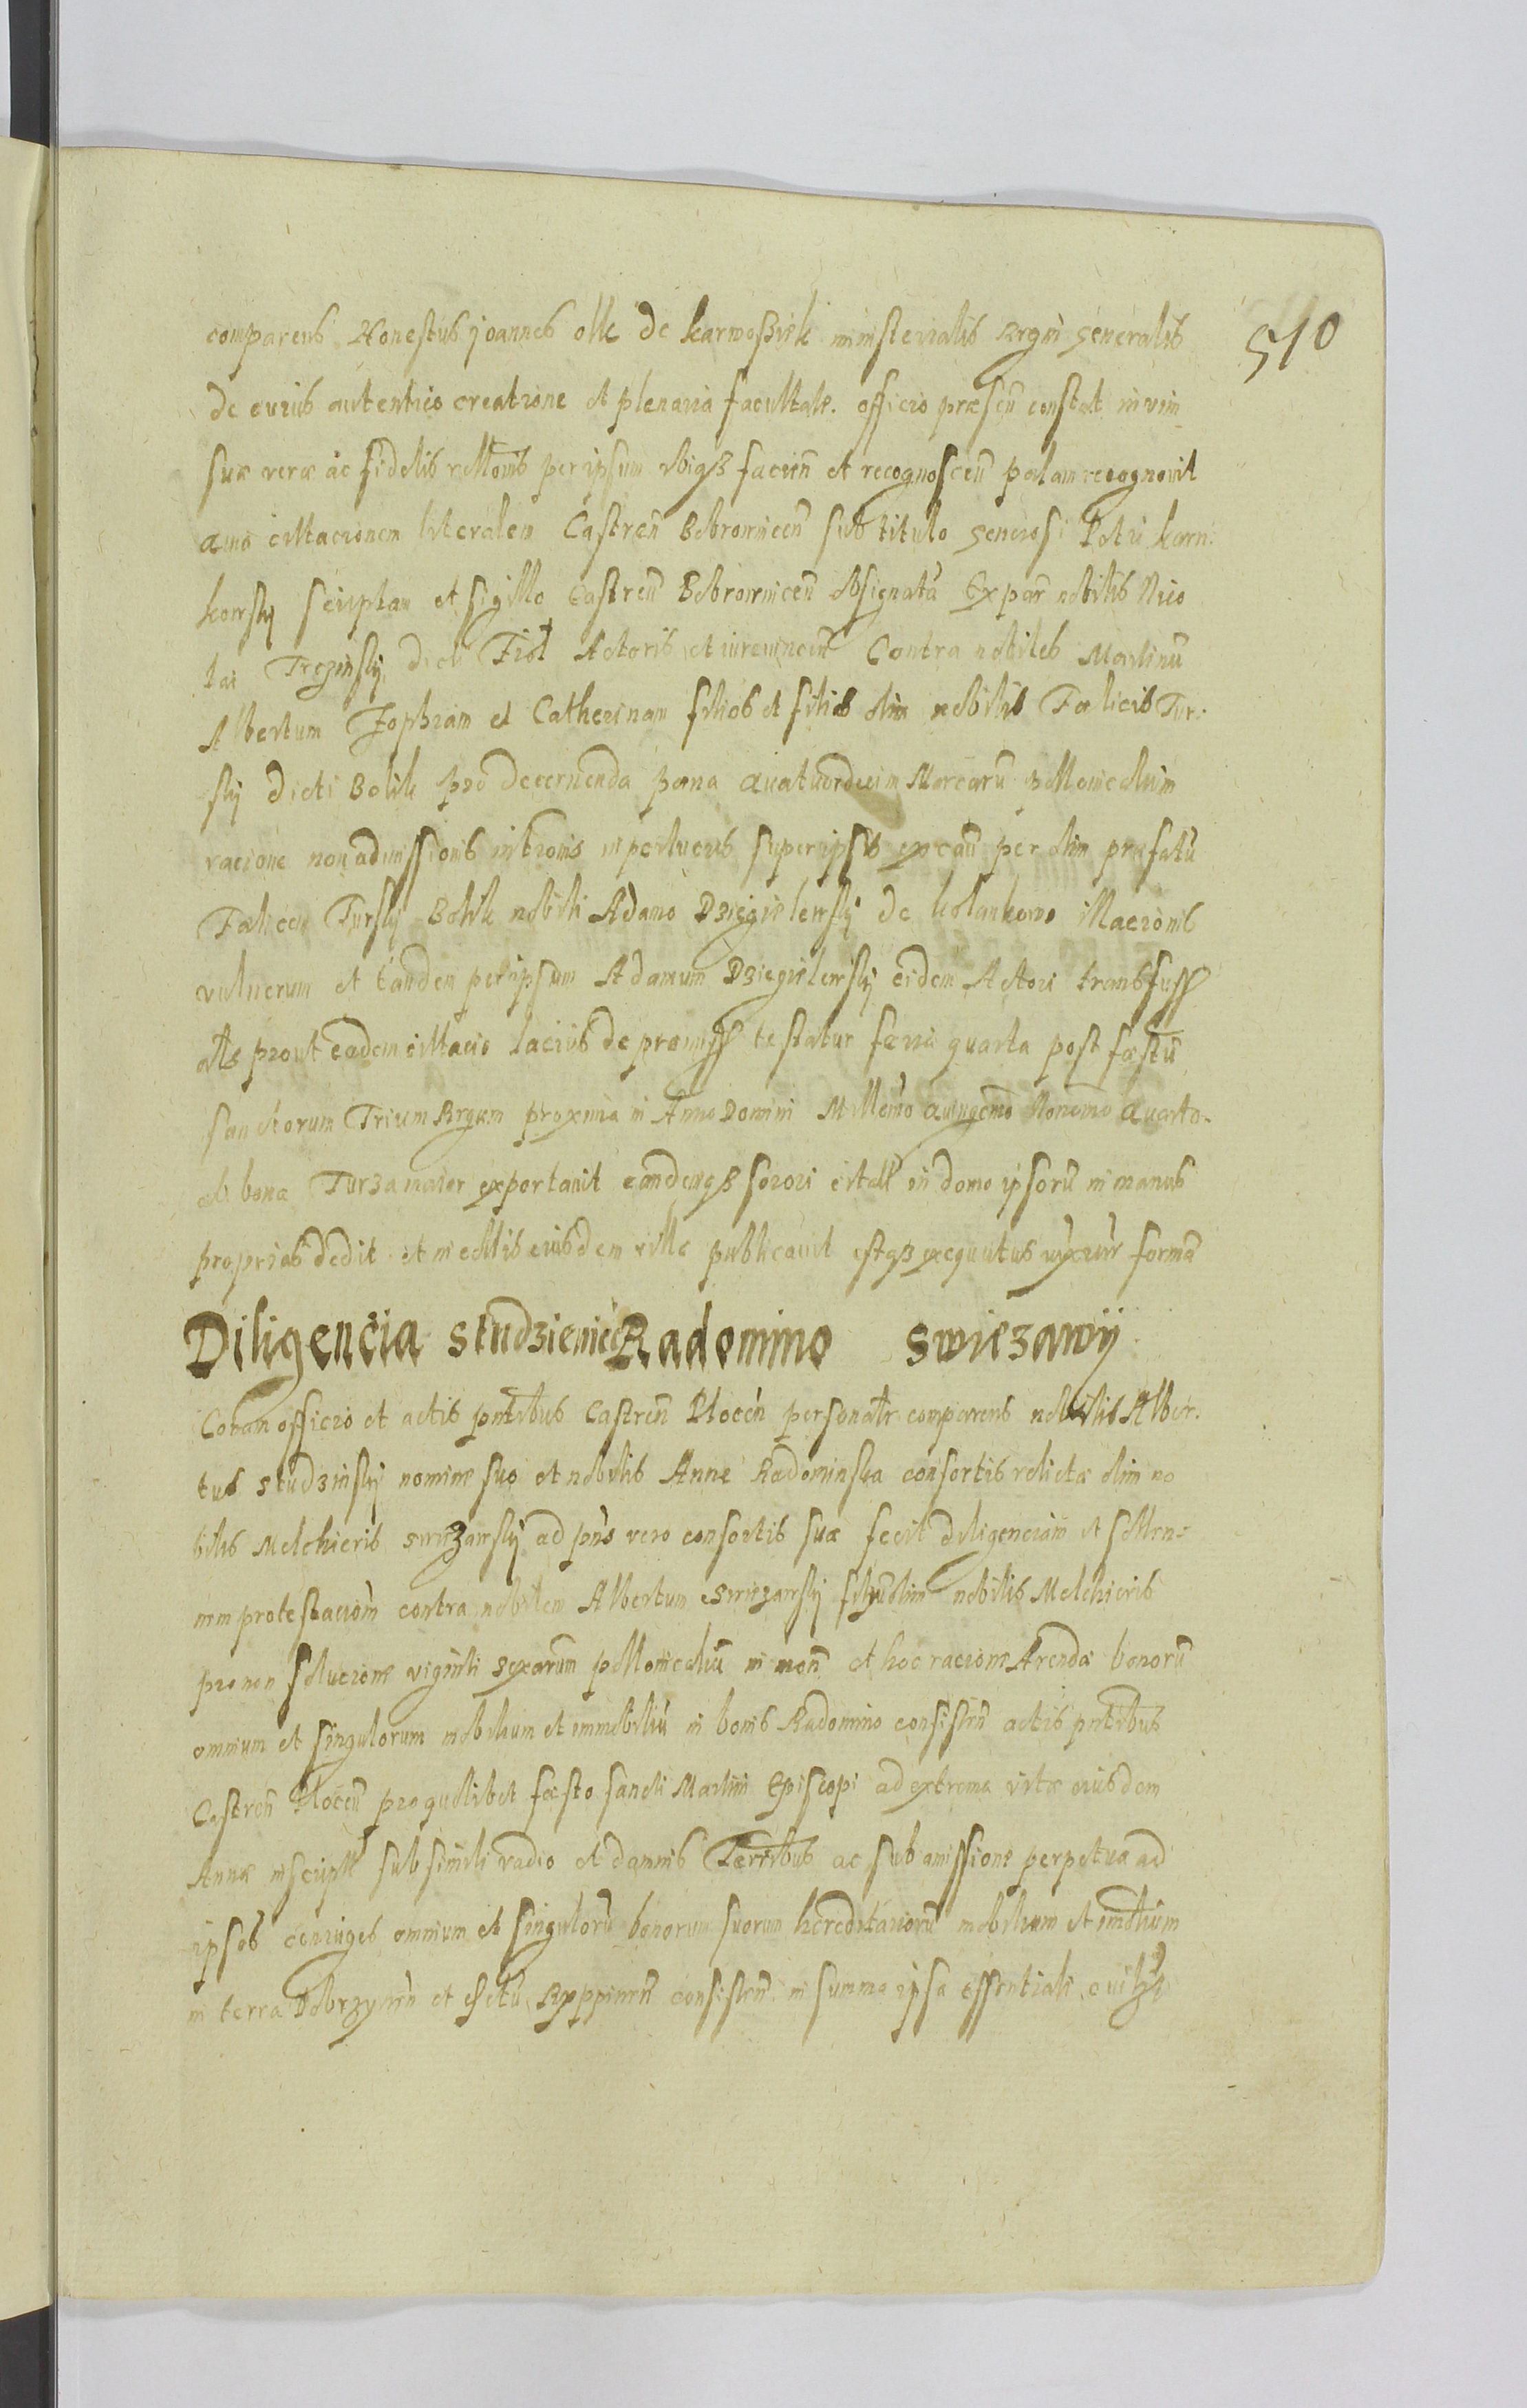 510
comparens Honestus Joannes olk de karwosziek ministerialis Regni generalis
de cuius autentico creatione et plenaria facultate officio præsen̄ constat in vim
suæ veræ ac fidelis rellōnis per ipsum ubiqȝ facien̄ et recognoscen̄ palam recognovit
quia cittacionem literalem Castren̄ Bobrownicen̄ sub titulo generosi Petri karn:
kowskij scriptam et sigillo Castren̄ Bobrownicen̄ obsignatā Ex par̄ nobilis Nico
lai Trczinskij dicti Fiol Actoris et iurevincen̄ Contra nobiles Martinū
Albertum Zophiam et Catherinam filios et filias olim nobilis Fœlicis Tur:
skij dicti Bolik pro decernenda pœna quatuordecim Marcarū pollonicalium
racione non admissionis in bonis super ipsis per olim præfatū
Fœlicem Turskij Bolik nobili Adamo Dziegielewskij de kolankowo illacionis
vulnerum et tandem per ipsum Adamum Dziegielewskij eidem Actori transfuss
als prout eadem cittacio lacius de præmiss testatur fœria quarta post fæstū
sanctorum Trium Regum proxima in Anno Domini Millēmo quingēmo Nonāmo quarto
ad bona Turza maior exportavit eandemqȝ sorori citatt in domo ipsorū in manus
proprias dedit et in eollis eiusdem villæ publicavit estqȝ exequutus iuxta iuris formā
Diligencia studzienieċ Radomino swiezawij
Coram officio et actis pn̄tibus Castren̄ Plocen̄ personalr̄ comparens nobilis Alber:
tus studzinskij nomine suo et nobilis Annæ Radominska consortis relictæ olim no
bilis Melchioris swiezawskij ad pn̄s vero consortis suæ fecit diligenciam et sollen:
nem protestaciōm contra nobilem Albertum swiezawskij filiū olim nobilis Melchioris
pro non solucione viginti sexarum pollonicaliū in mon̄ et hoc racione Arendæ bonorū
omnium et singulorum mobilium et immobiliū in bonis Radomino consisten̄ actis pn̄tibus
Castren̄ Plocen̄ pro quolibet fæsto sancti Martini Episcopi ad extrema vitæ eiusdem
Annæ inscriptt sub simili vadio et damnis Terr̄ibus ac sub amissione perpetua ad
ipsos coniuges omnium et singulorū bonorum suorum hereditariorū mobilium et imobilium
in terra Dobrzynen̄ et distctū Ryppinen̄ consisten̄ in summa ipsa essentiali